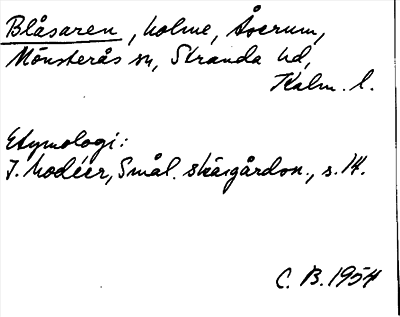 Blåsaren, holme, Åverum,
Mönsterås sn, Stranda hd,
Kalm. l.
Etymologi:
I. Modéer, Smål. skärgårdsn., s. 14.
C. B. 1954